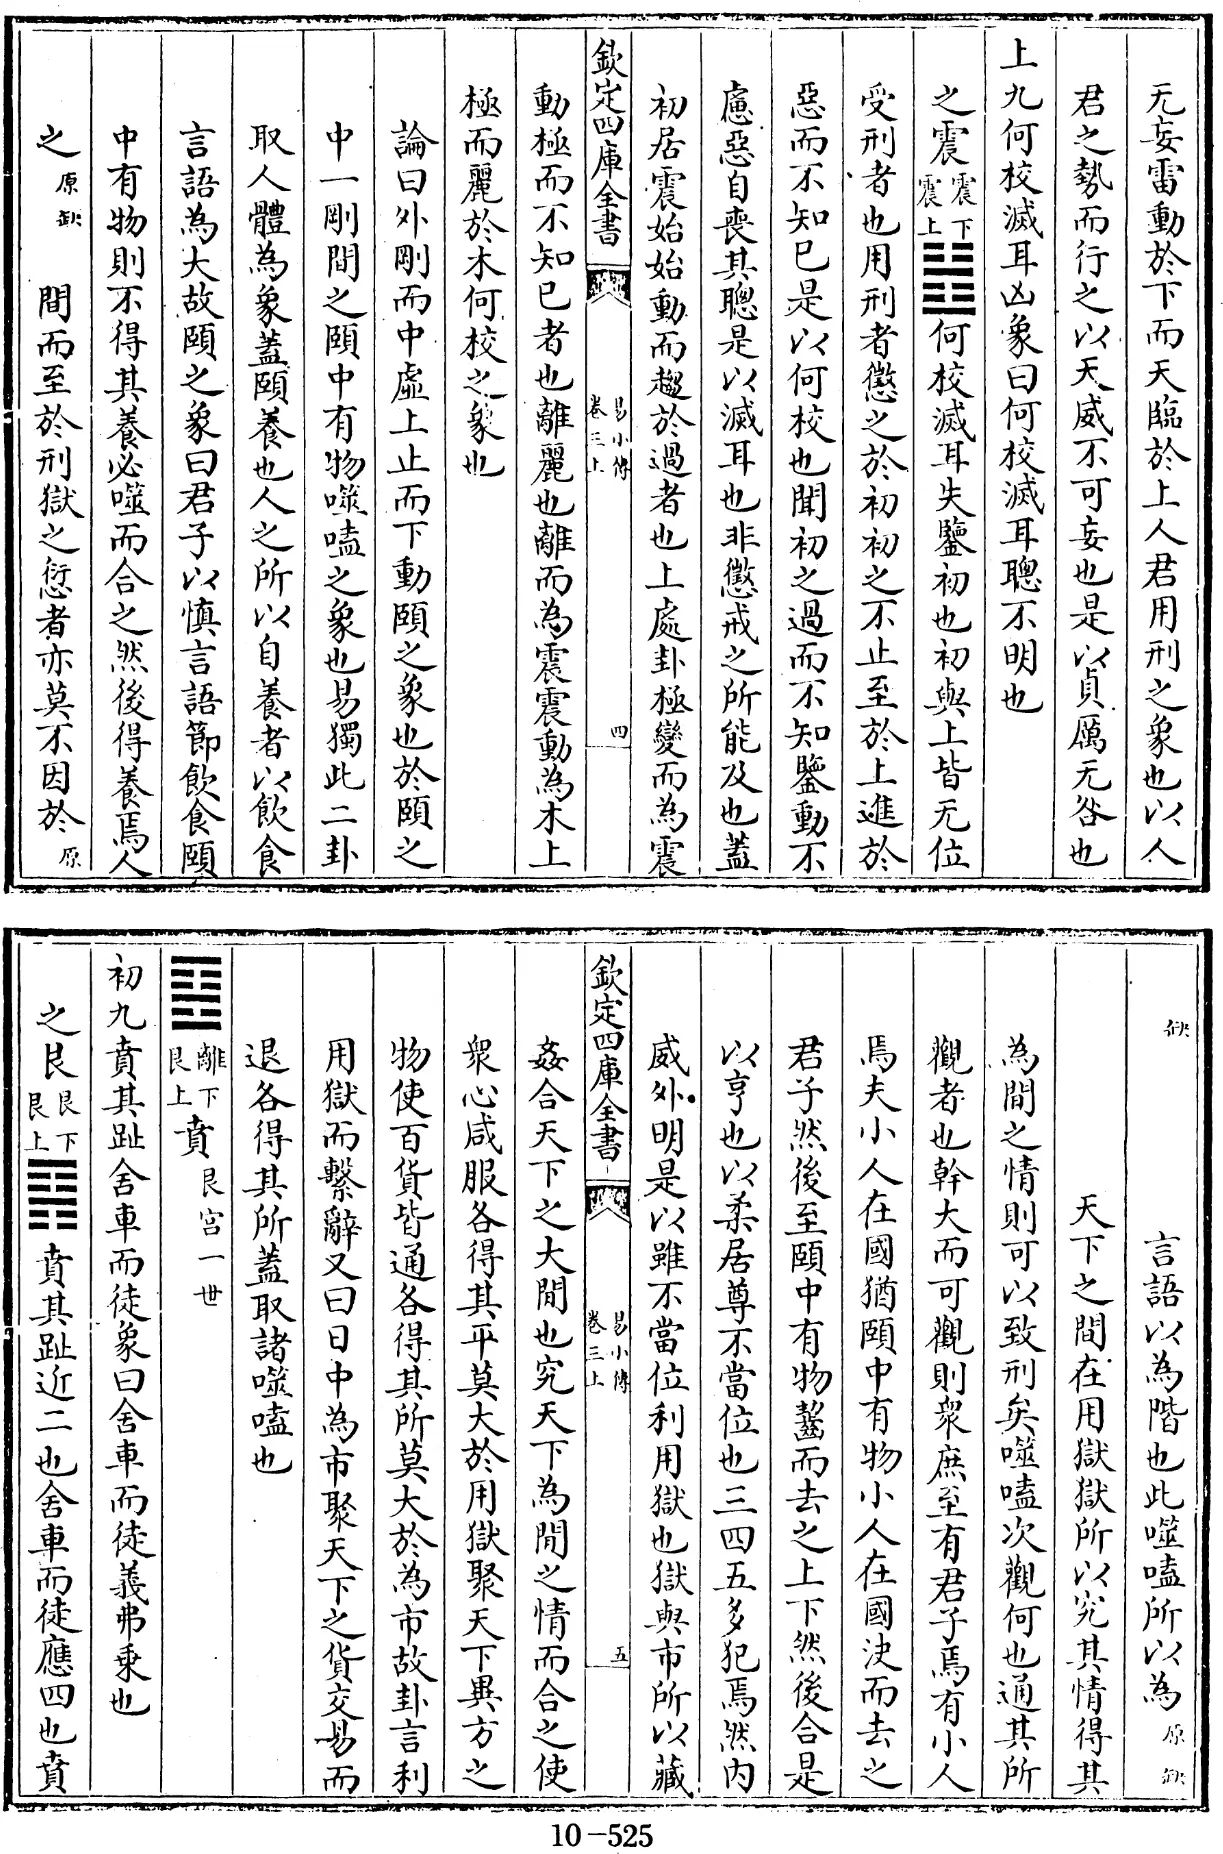 无妄雷動於下而天臨於上人君用刑之象也以人
君之勢而行之以天威不可妄也是以貞厲无咎也
上九何校滅耳凶象曰何校滅耳聰不明也
之震震下震上䷲何校滅耳失鑒初也初與上皆无位
受刑者也用刑者懲之於初初之不止至於上進於
惡而不知已是以何校也聞初之過而不知鑒動不
慮惡自喪其聰是以滅耳也非懲戒之所能及也蓋
初居震始始動而趨於過者也上處卦極變而為震
欽定四庫全書 易小傳卷三上 四
動極而不知已者也離麗也離而為震震動為木上
極而麗於木何校之象也
論曰外剛而中虛上止而下動頤之象也於頤之
中一剛間之頤中有物噬嗑之象也易獨此二卦
取人體為象蓋頤養也人之所以自養者以飲食
言語為大故頤之象曰君子以慎言語節飲食頤
中有物則不得其養必噬而合之然後得養焉人
之原缺 間而至於刑獄之愆者亦莫不因於原
缺 言語以為階也此噬嗑所以為原缺
天下之間在用獄獄所以究其情得其
為間之情則可以致刑矣噬嗑次觀何也通其所
觀者也幹大而可觀則衆庶至有君子焉有小人
焉夫小人在國猶頤中有物小人在國決而去之
君子然後至頤中有物齧而去之上下然後合是
以亨也以柔居尊不當位也三四五多犯焉然內
威外明是以雖不當位利用獄也獄與市所以藏
欽定四庫全書 易小傳卷三上 五
姦合天下之大間也究天下為間之情而合之使
衆心咸服各得其平莫大於用獄聚天下異方之
物使百貨皆通各得其所莫大於為市故卦言利
用獄而繫辭又曰日中為市聚天下之貨交易而
退各得其所蓋取諸噬嗑也
䷕離下艮上賁艮宮一世
初九賁其趾舍車而徒象曰舍車而徒義弗乘也
之艮艮下艮上䷳賁其趾近二也舍車而徒應四也賁
10-525